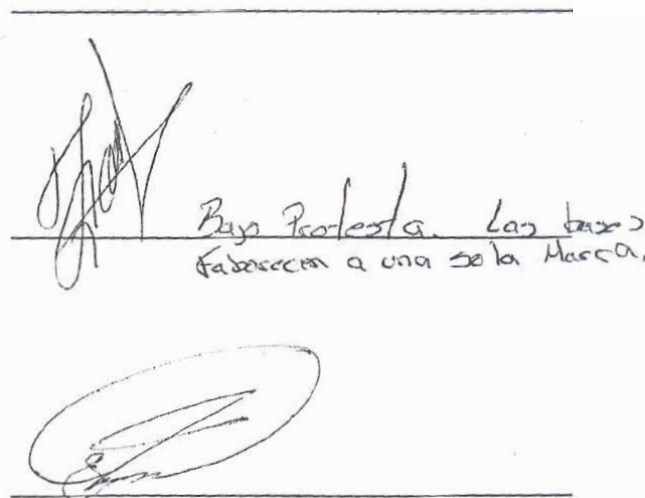 Bajo Protesta. Las bases
Faborecen a una sola Marca.